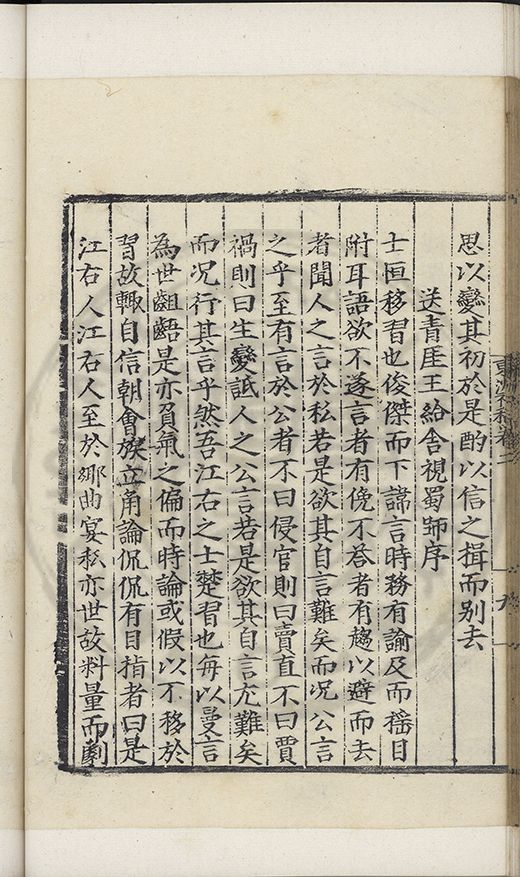 思以變其初於是酌以信之揖而别去
送青厓王給舍視蜀師序
士恒移習也俊傑而下諱言時務有諭及而摇目
附耳語欲不遂言者有俛不答者有趨以避而去
者聞人之言於私若是欲其自言難矣而况公言
之乎至有言於公者不曰侵官則曰賣直不曰賈
禍則曰生變詆人之公言若是欲其自言尤難矣
而况行其言乎然吾江右之士楚習也每以曼言
為世齟齬是亦負氣之偏而時論或假以不移於
習故輒自信朝會族立角論侃侃有目指者曰是
江右人江右人至於鄉曲宴私亦世故料量而劇